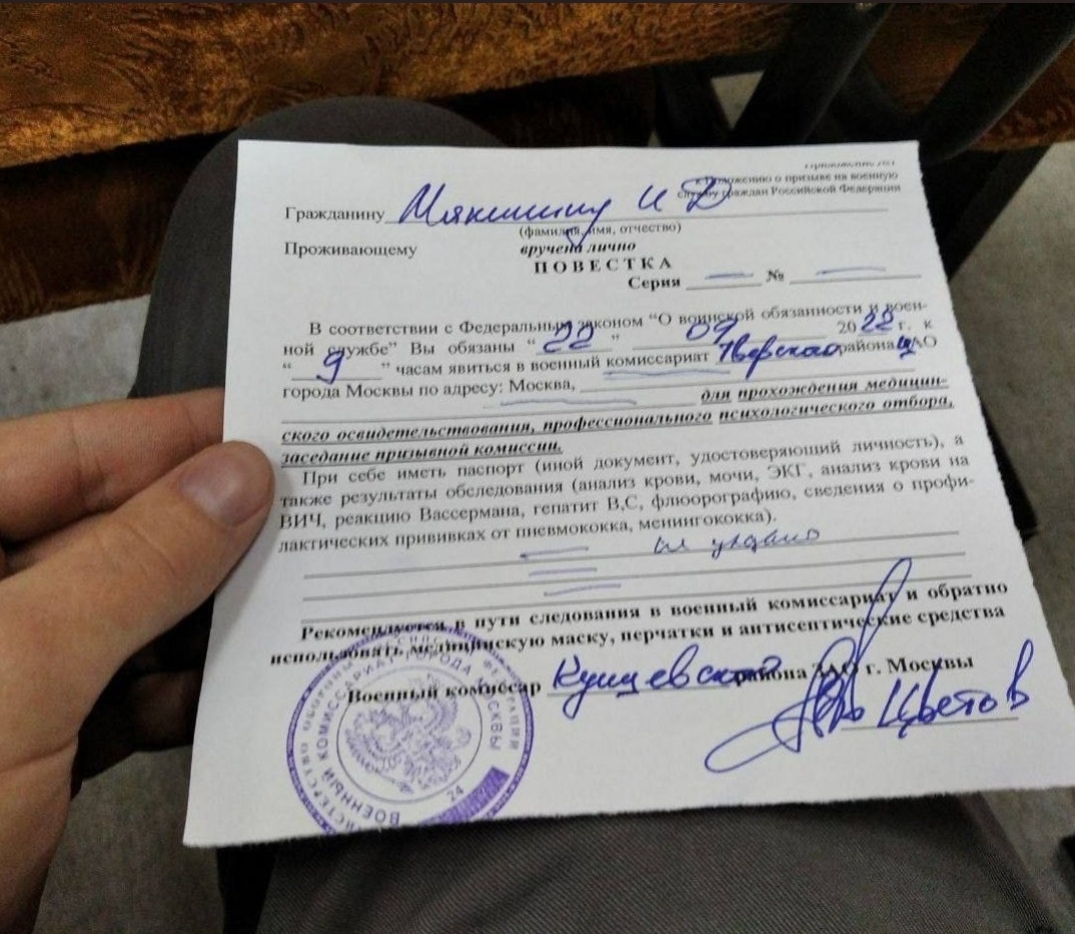 Приложение №1
к Положению о призыве на военную
службу граждан Российской Федерации
Гражданину Мякишину И Д
(фамилия, имя, отчество)
Проживающему
вручена лично
ПОВЕСТКА
Серия № 
В соответствии с Федеральным законом “О воинской обязанности и воен-
ной службе” Вы обязаны “ 22 ” 09 2022 г. к
“ 9 ” часам явиться в военный комиссариат Тверского района ЦАО
города Москвы по адресу: Москва,
для прохождения медицин-
ского освидетельствования, профессионального психологического отбора,
заседание призывной комиссии.
При себе иметь паспорт (иной документ, удостоверяющий личность), а
также результаты обследования (анализ крови, мочи, ЭКГ, анализ крови на
ВИЧ, реакцию Вассермана, гепатит В,С, флюорографию, сведения о профи-
лактических прививках от пневмококка, менингококка).
Рекомендуется в пути следования в военный комиссариат и обратно
использовать медицинскую маску, перчатки и антисептические средства
Военный комиссар района ЗАО г. Москвы
Цветов
ВОЕННЫЙ КОМИССАРИАТ ГОРОДА МОСКВЫ
24